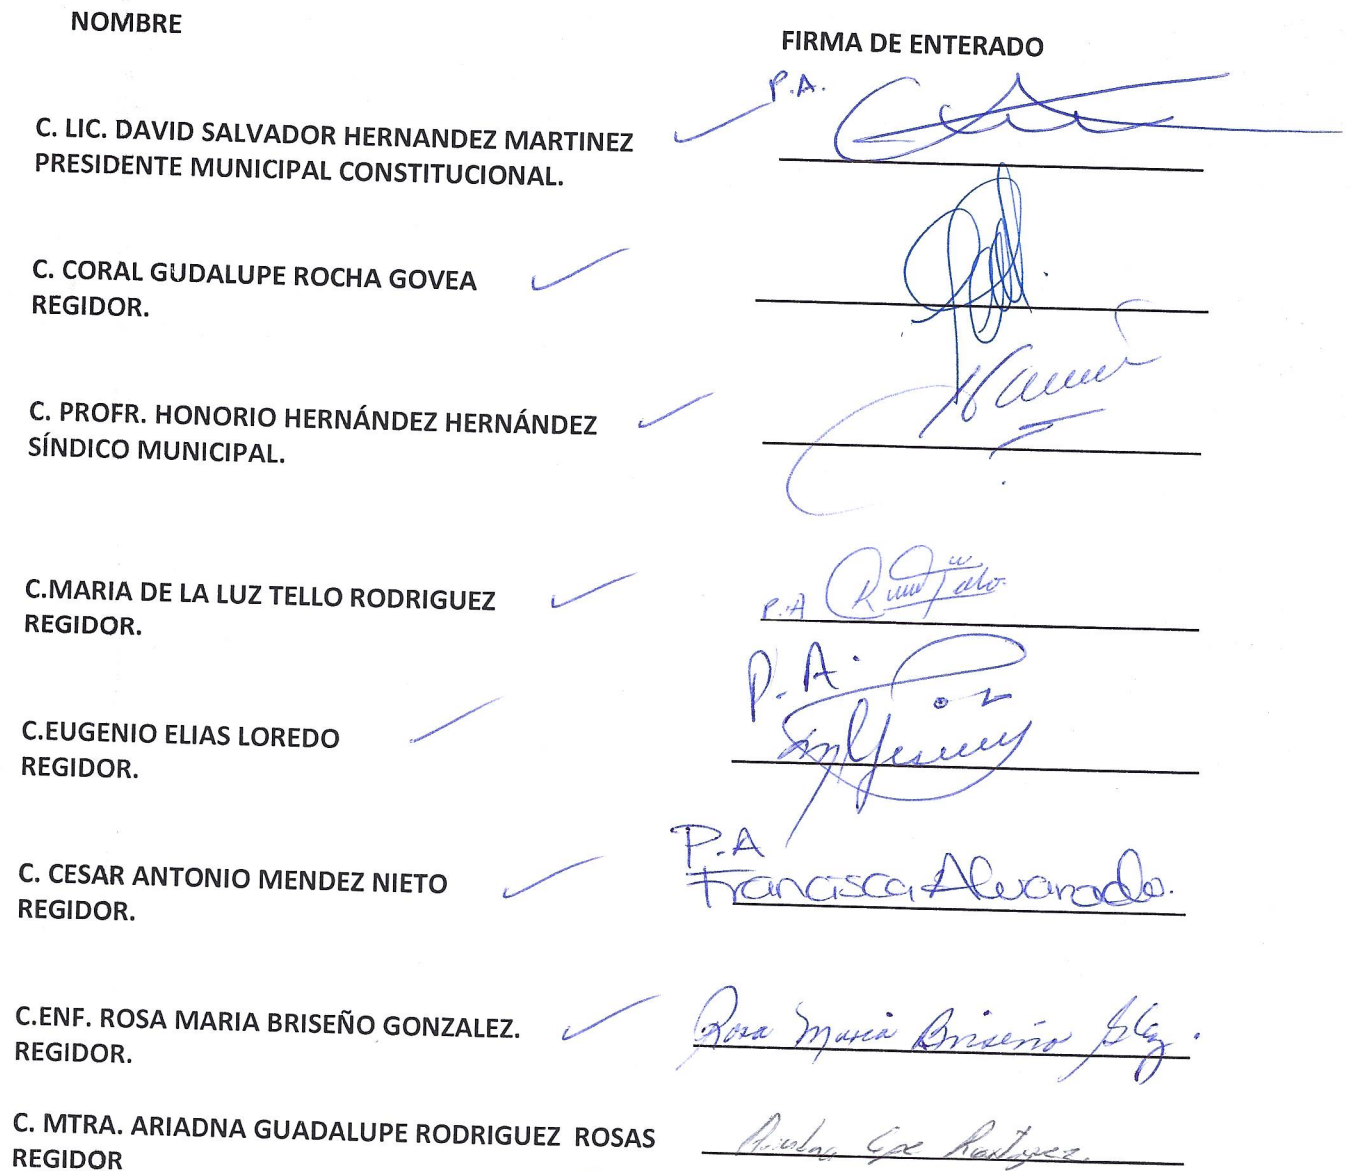 NOMBRE
FIRMA DE ENTERADO
P.A.
C. LIC. DAVID SALVADOR HERNANDEZ MARTINEZ
PRESIDENTE MUNICIPAL CONSTITUCIONAL.
C. CORAL GUDALUPE ROCHA GOVEA
REGIDOR.
C. PROFR. HONORIO HERNÁNDEZ HERNÁNDEZ
SÍNDICO MUNICIPAL.
C.MARIA DE LA LUZ TELLO RODRIGUEZ
P.A
REGIDOR.
P.A.
C.EUGENIO ELIAS LOREDO
REGIDOR.
P.A
C. CESAR ANTONIO MENDEZ NIETO
Francisca Alvarado.
REGIDOR.
C.ENF. ROSA MARIA BRISEÑO GONZALEZ.
Rosa Maria Briseño Glez.
REGIDOR.
C. MTRA. ARIADNA GUADALUPE RODRIGUEZ ROSAS
Ariadna Gpe Rodríguez
REGIDOR